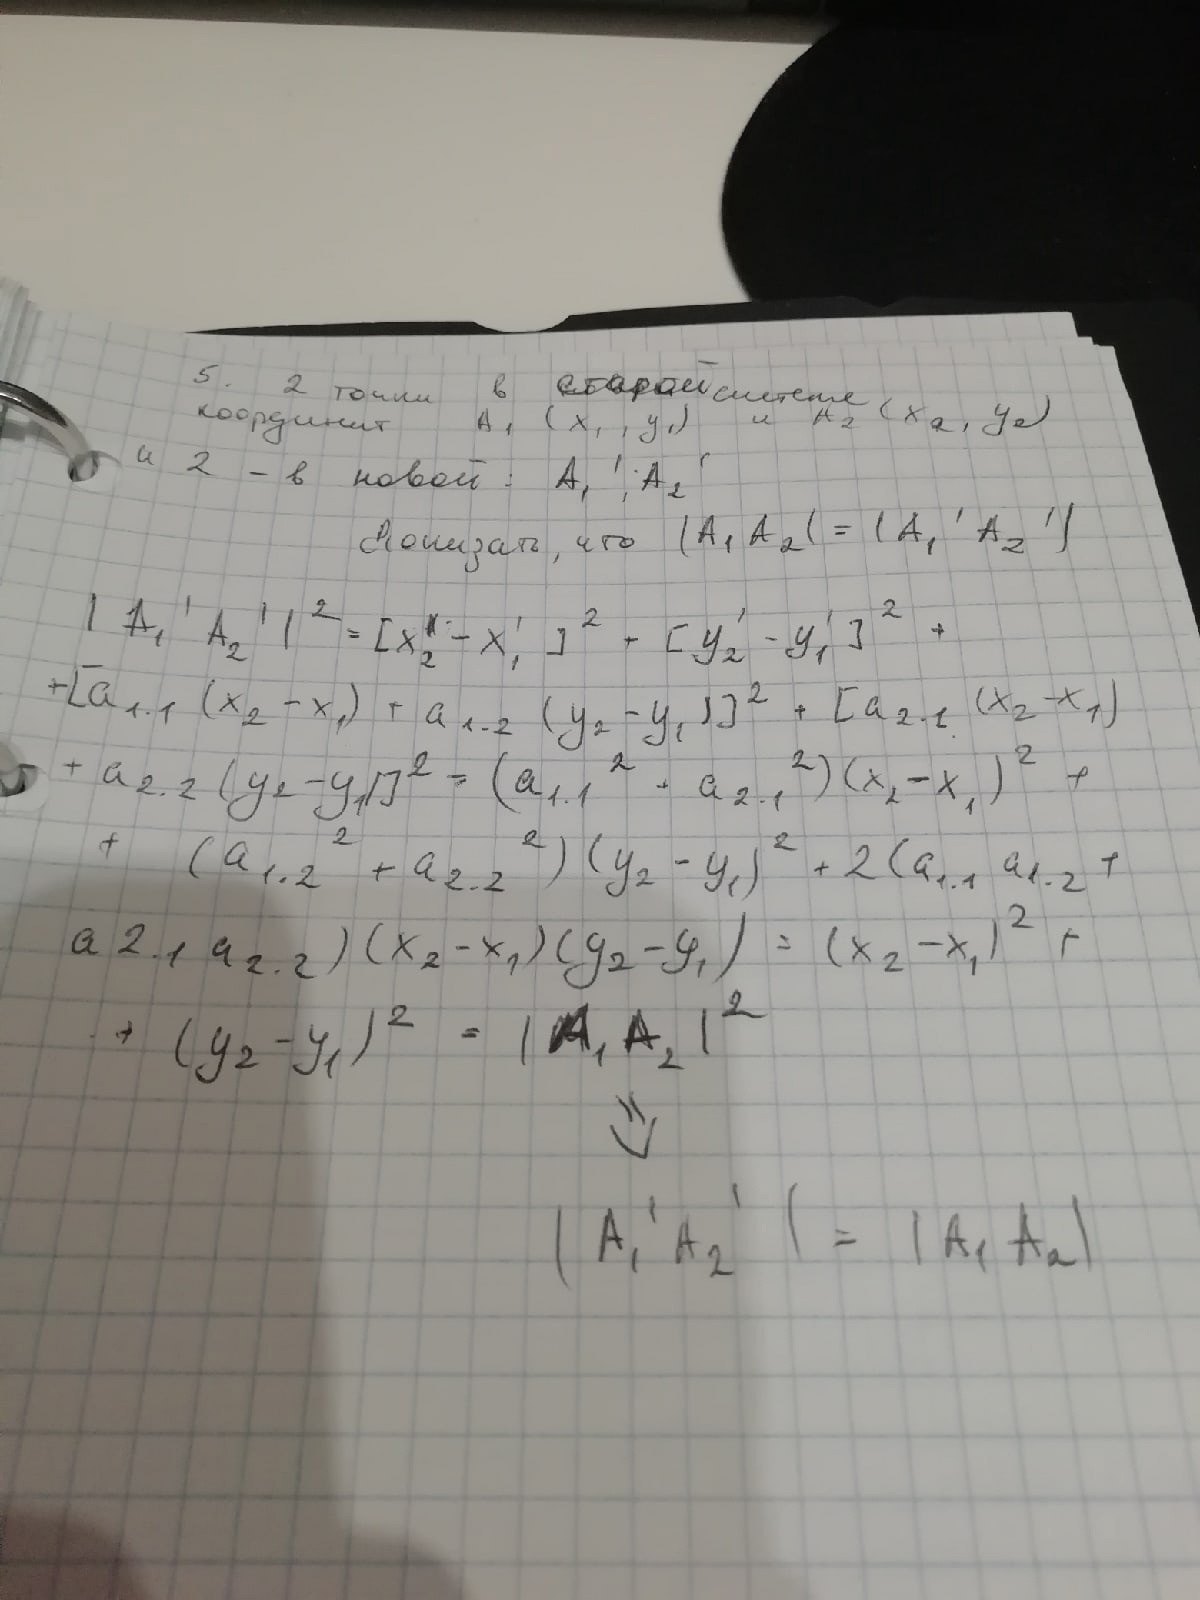 5. 2 точки в старой системе
координат A₁ (x₁, y₁) и A₂ (x₂, y₂)
и 2 - в новой: A₁', A₂'
Доказать, что |A₁ A₂| = |A₁' A₂'|
|A₁' A₂'|² = [x₂' - x₁']² + [y₂' - y₁']² +
+ [a₁.₁ (x₂ - x₁) + a₁.₂ (y₂ - y₁)]² + [a₂.₁ (x₂ - x₁)
+ a₂.₂ (y₂ - y₁)]² = (a₁.₁² + a₂.₁²)(x₂ - x₁)² +
+ (a₁.₂² + a₂.₂²)(y₂ - y₁)² + 2(a₁.₁ a₁.₂ +
a2.₁ a₂.₂)(x₂ - x₁)(y₂ - y₁) = (x₂ - x₁)² +
+ (y₂ - y₁)² = |A₁ A₂|²
⇓
|A₁' A₂'| = |A₁ A₂|